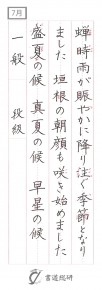 7月
蝉時雨が賑やかに降り注ぐ季節となり
ました 垣根の朝顔も咲き始めました
盛夏の候 真夏の候 早星の候
一般 段級
書道総研